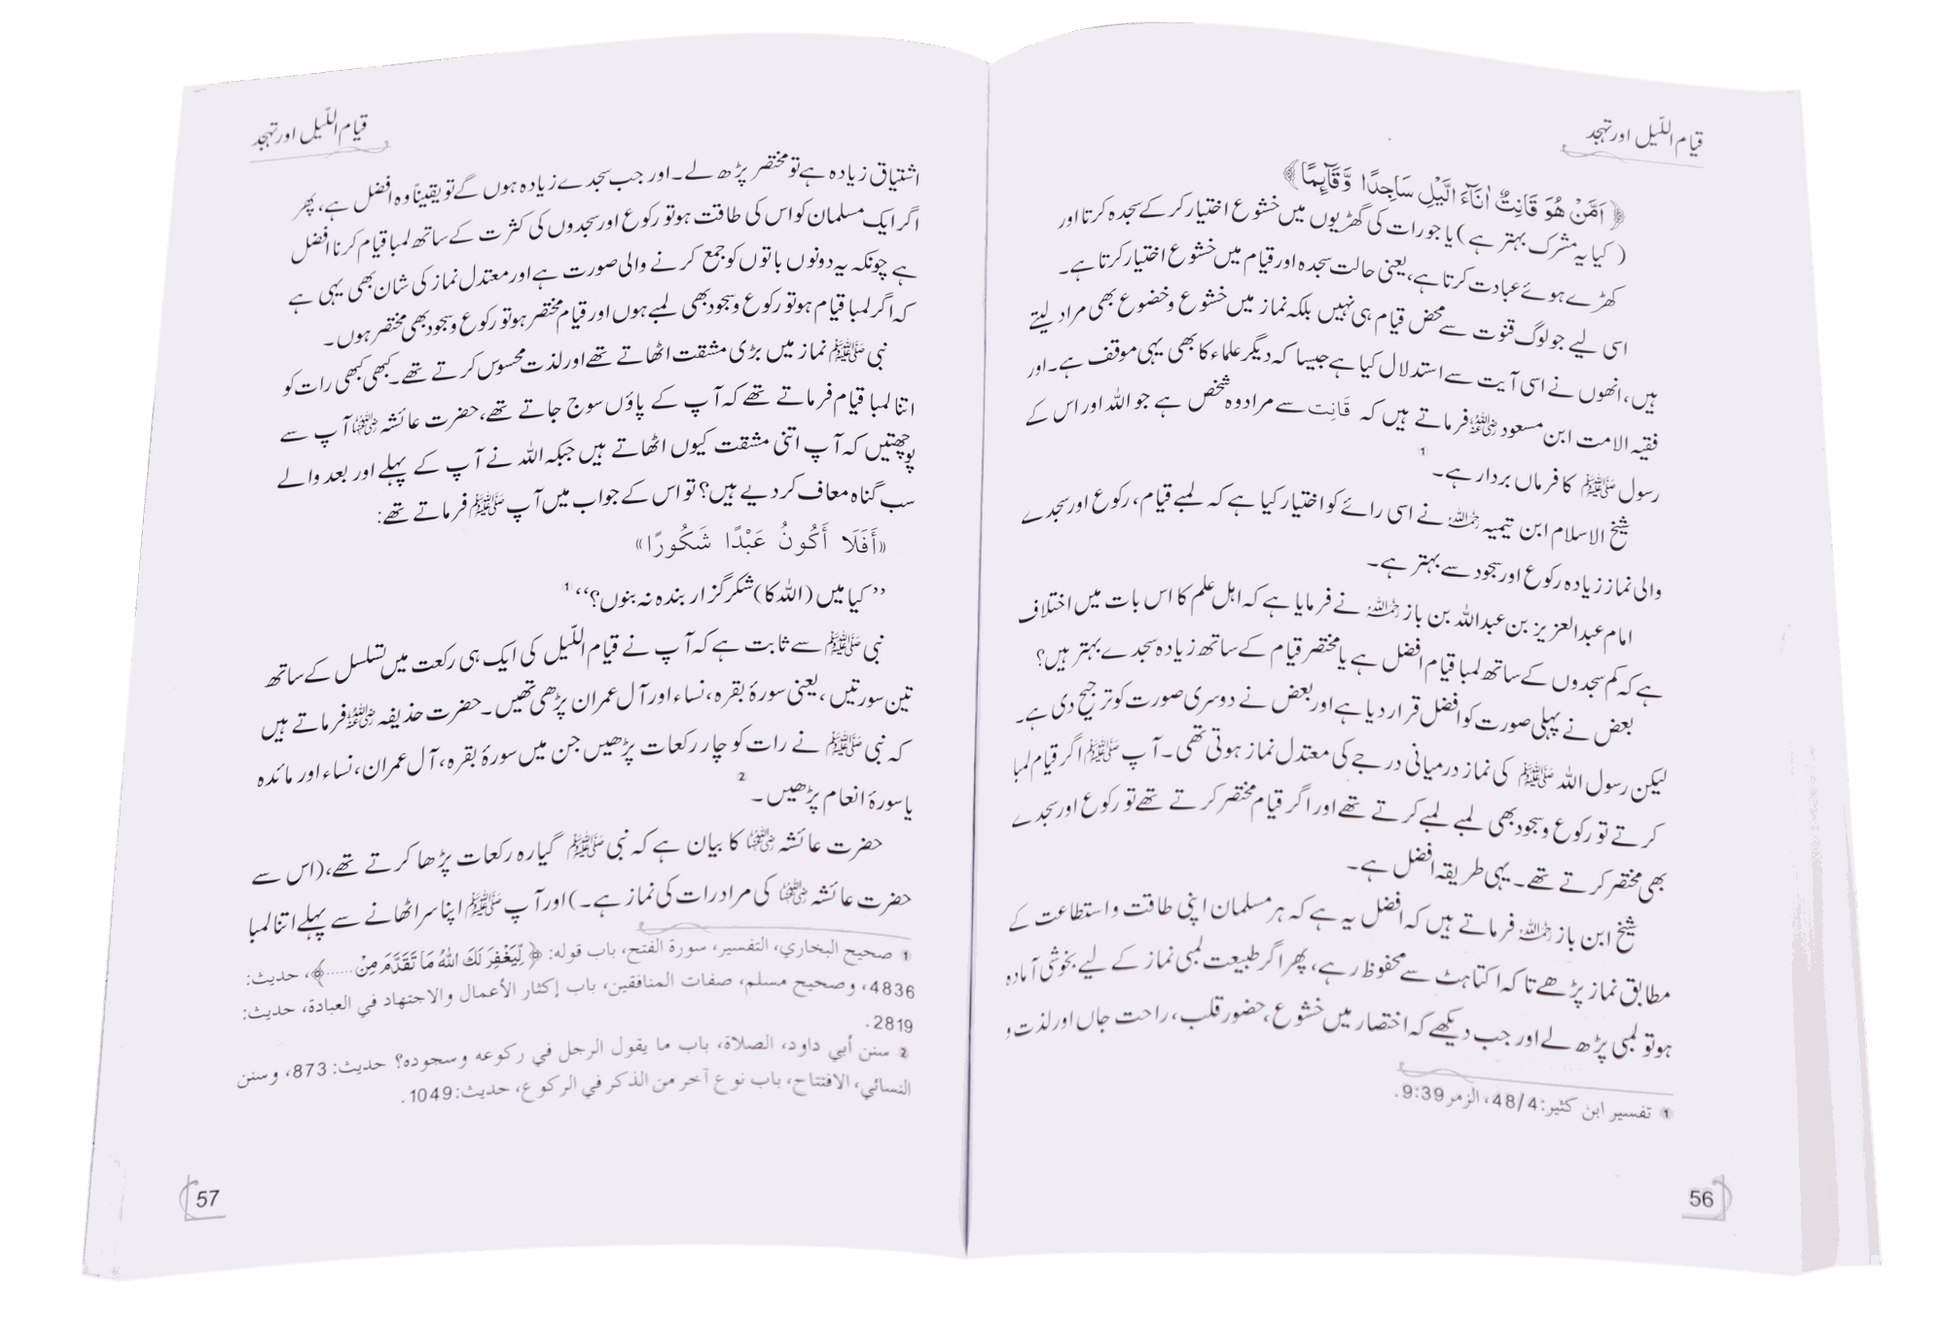 قیام اللّیل اور تہجد
﴿ اَمَّنْ هُوَ قَانِتٌ اٰنَآءَ الَّيْلِ سَاجِدًا وَّقَآئِمًا﴾
( کیا یہ مشرک بہتر ہے) یا جو رات کی گھڑیوں میں خشوع اختیار کر کے سجدہ کرتا اور
کھڑے ہوئے عبادت کرتا ہے، یعنی حالت سجدہ اور قیام میں خشوع اختیار کرتا ہے۔
اسی لیے جو لوگ قنوت سے محض قیام ہی نہیں بلکہ نماز میں خشوع و خضوع بھی مراد لیتے
ہیں، انھوں نے اسی آیت سے استدلال کیا ہے جیسا کہ دیگر علماء کا بھی یہی موقف ہے۔ اور
فقیہ الامت ابن مسعود رضی اللہ عنہ فرماتے ہیں کہ قَانِت سے مراد وہ شخص ہے جو اللہ اور اس کے
رسول ﷺ کا فرماں بردار ہے۔ ①
شیخ الاسلام ابن تیمیہ رحمہ اللہ نے اسی رائے کو اختیار کیا ہے کہ لمبے قیام، رکوع اور سجدے
والی نماز زیادہ رکوع اور سجود سے بہتر ہے۔
امام عبدالعزیز بن عبداللہ بن باز رحمہ اللہ نے فرمایا ہے کہ اہل علم کا اس بات میں اختلاف
ہے کہ کم سجدوں کے ساتھ لمبا قیام افضل ہے یا مختصر قیام کے ساتھ زیادہ سجدے بہتر ہیں؟
بعض نے پہلی صورت کو افضل قرار دیا ہے اور بعض نے دوسری صورت کو ترجیح دی ہے۔
لیکن رسول اللہ ﷺ کی نماز درمیانی درجے کی معتدل نماز ہوتی تھی۔ آپ ﷺ اگر قیام لمبا
کرتے تو رکوع و سجود بھی لمبے لمبے کرتے تھے اور اگر قیام مختصر کرتے تھے تو رکوع اور سجدے
بھی مختصر کرتے تھے۔ یہی طریقہ افضل ہے۔
شیخ ابن باز رحمہ اللہ فرماتے ہیں کہ افضل یہ ہے کہ ہر مسلمان اپنی طاقت و استطاعت کے
مطابق نماز پڑھے تاکہ اکتاہٹ سے محفوظ رہے، پھر اگر طبیعت لمبی نماز کے لیے بخوشی آمادہ
ہو تو لمبی پڑھ لے اور جب دیکھے کہ اختصار میں خشوع، حضور قلب، راحت جاں اور لذت و
① تفسیر ابن کثیر: 48/4، الزمر 9:39.
56
قیام اللّیل اور تہجد
اشتیاق زیادہ ہے تو مختصر پڑھ لے۔ اور جب سجدے زیادہ ہوں گے تو یقیناً وہ افضل ہے، پھر
اگر ایک مسلمان کو اس کی طاقت ہو تو رکوع اور سجدوں کی کثرت کے ساتھ لمبا قیام کرنا افضل
ہے چونکہ یہ دونوں باتوں کو جمع کرنے والی صورت ہے اور معتدل نماز کی شان بھی یہی ہے
کہ اگر لمبا قیام ہو تو رکوع و سجود بھی لمبے ہوں اور قیام مختصر ہو تو رکوع و سجود بھی مختصر ہوں۔
نبی ﷺ نماز میں بڑی مشقت اٹھاتے تھے اور لذت محسوس کرتے تھے۔ کبھی کبھی رات کو
اتنا لمبا قیام فرماتے تھے کہ آپ کے پاؤں سوج جاتے تھے، حضرت عائشہ رضی اللہ عنہا آپ سے
پوچھتیں کہ آپ اتنی مشقت کیوں اٹھاتے ہیں جبکہ اللہ نے آپ کے پہلے اور بعد والے
سب گناہ معاف کر دیے ہیں؟ تو اس کے جواب میں آپ ﷺ فرماتے تھے:
«أَفَلَا أَكُونُ عَبْدًا شَكُورًا»
’’کیا میں (اللہ کا) شکر گزار بندہ نہ بنوں؟‘‘ ①
نبی ﷺ سے ثابت ہے کہ آپ نے قیام اللّیل کی ایک ہی رکعت میں تسلسل کے ساتھ
تین سورتیں، یعنی سورۂ بقرہ، نساء اور آل عمران پڑھی تھیں۔ حضرت حذیفہ رضی اللہ عنہ فرماتے ہیں
کہ نبی ﷺ نے رات کو چار رکعات پڑھیں جن میں سورۂ بقرہ، آل عمران، نساء اور مائدہ
یا سورۂ انعام پڑھیں۔ ②
حضرت عائشہ رضی اللہ عنہا کا بیان ہے کہ نبی ﷺ گیارہ رکعات پڑھا کرتے تھے، (اس سے
حضرت عائشہ رضی اللہ عنہا کی مراد رات کی نماز ہے۔) اور آپ ﷺ اپنا سر اٹھانے سے پہلے اتنا لمبا
① صحيح البخاري، التفسير، سورة الفتح، باب قوله: ﴿ لِّيَغْفِرَ لَكَ اللّٰهُ مَا تَقَدَّمَ مِنْ......﴾، حديث:
4836، وصحيح مسلم، صفات المنافقين، باب إكثار الأعمال والاجتهاد في العبادة، حديث:
2819.
② سنن أبي داود، الصلاة، باب ما يقول الرجل في ركوعه وسجوده؟ حديث: 873، وسنن
النسائي، الافتتاح، باب نوع آخر من الذكر في الركوع، حديث: 1049.
57